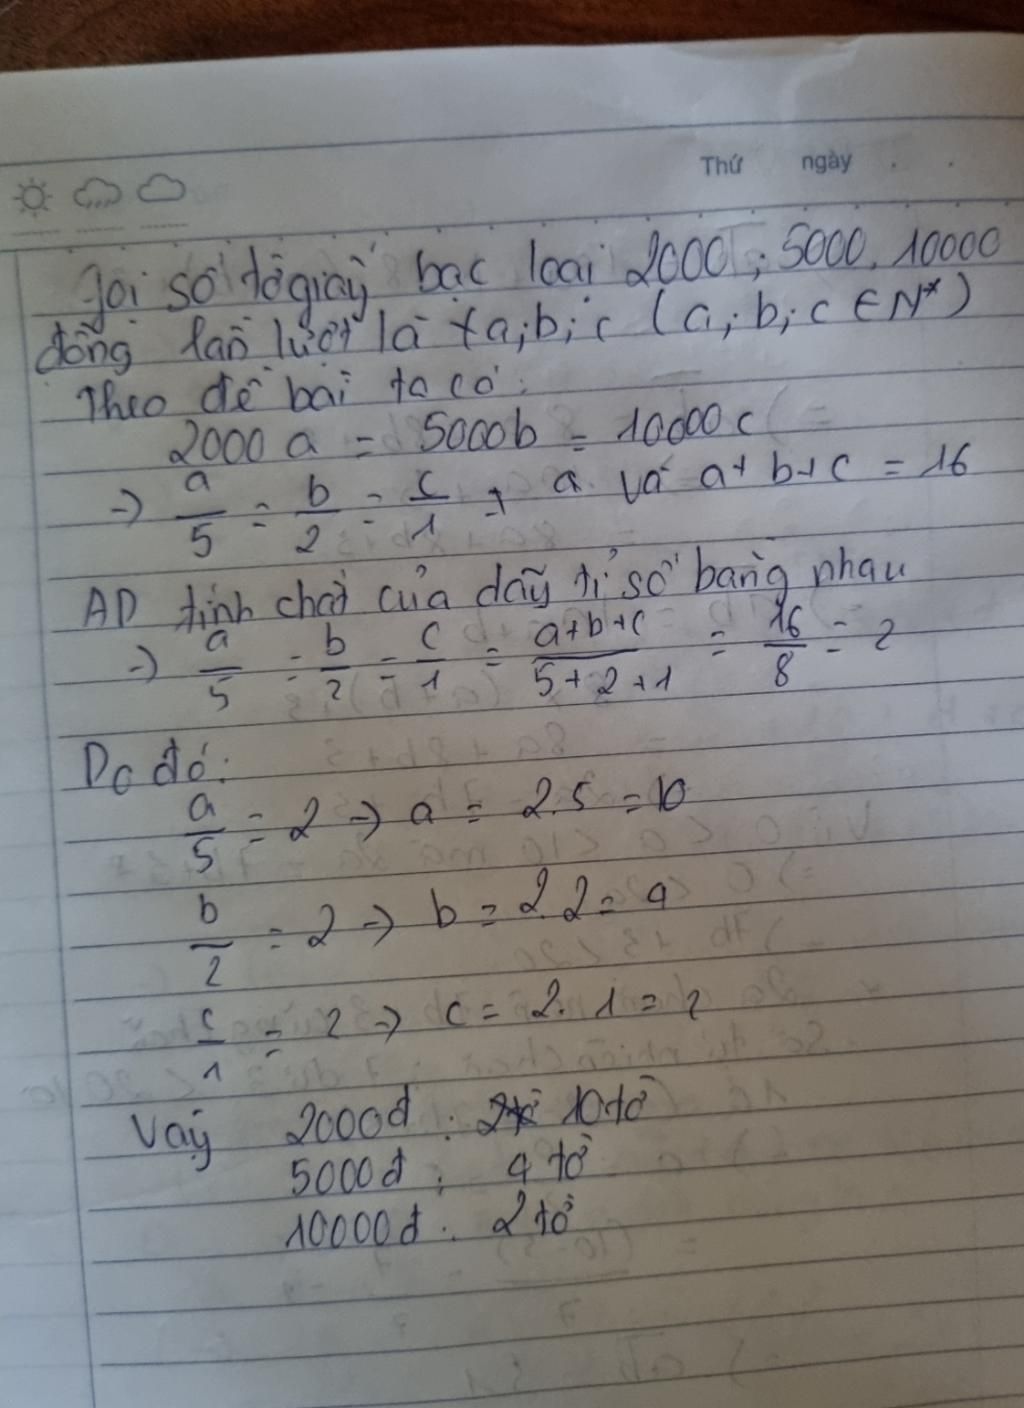 Thứ ngày
Gọi số tờ giấy bạc loại 2000; 5000, 10000
đồng lần lượt là a; b; c (a; b; c ∈ N*)
Theo đề bài ta có:
2000a = 5000b = 10000c
→ a/5 = b/2 = c/1 và a+b+c = 16
AD tính chất của dãy tỉ số bằng nhau
→ a/5 = b/2 = c/1 = a+b+c/5+2+1 = 16/8 = 2
Do đó:
a/5 = 2 → a = 2.5 = 10
b/2 = 2 → b = 2.2 = 4
c/1 = 2 → c = 2.1 = 2
Vậy 2000đ: 10 tờ
5000đ: 4 tờ
10000đ: 2 tờ